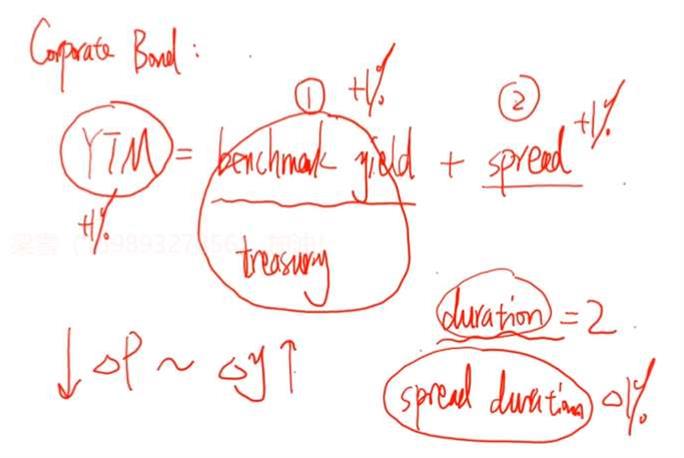 Corporate Bond:
① +1% ② +1%
YTM = benchmark yield + spread
+1%
treasury
duration = 2
↓ △P ~ △y ↑
spread duration △1%